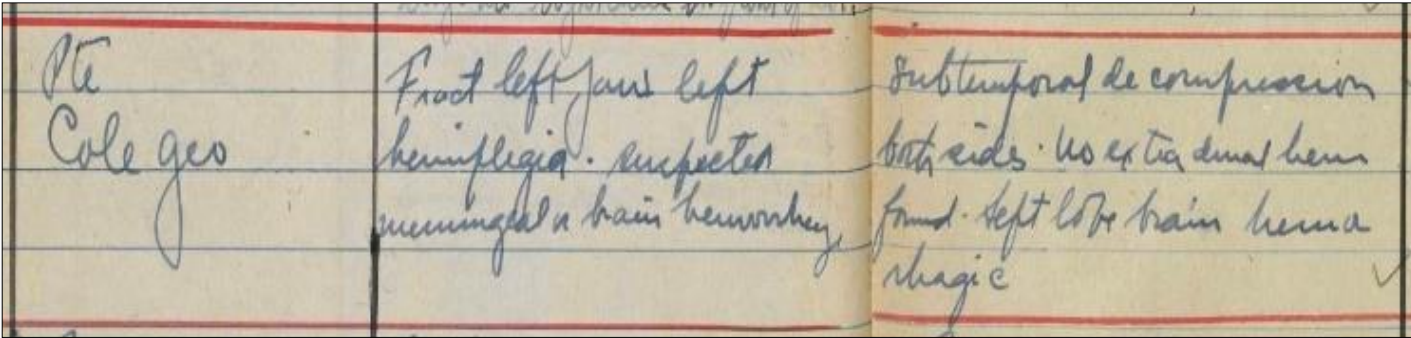 Pte
Cole Geo
Fract left jaw left
hemiplegia. suspected
meningeal or brain hemorrhag
Subtemporal decompression
both sides. No extra dural hem
found. Left lobe brain hemo
rhagic